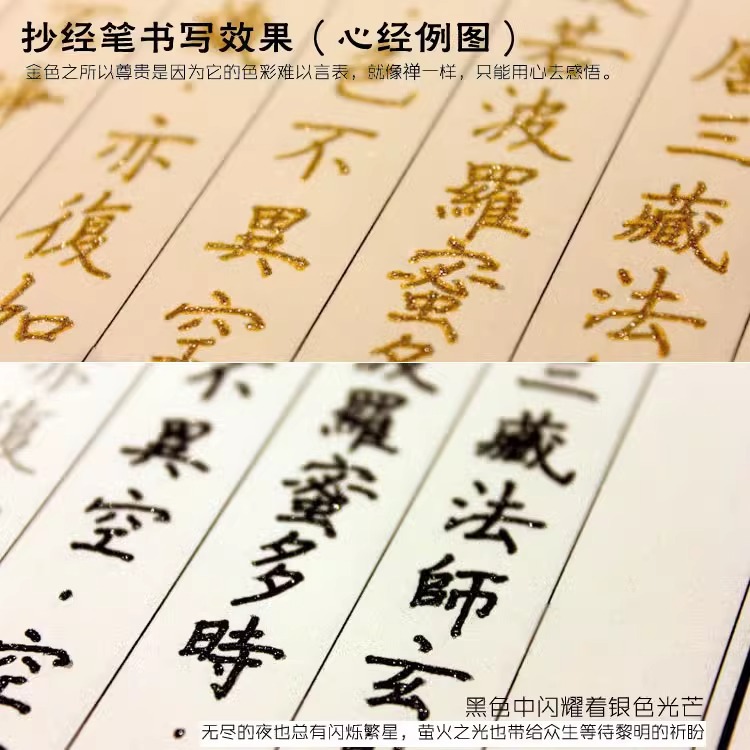 抄经笔书写效果（心经例图）
金色之所以尊贵是因为它的色彩难以言表，就像禅一样，只能用心去感悟。
唐三藏法
若波羅蜜多
色不異空
·亦復如
三藏法師玄
波羅蜜多時
不異空·空
亦復
黑色中闪耀着银色光芒
无尽的夜也总有闪烁繁星，萤火之光也带给众生等待黎明的祈盼